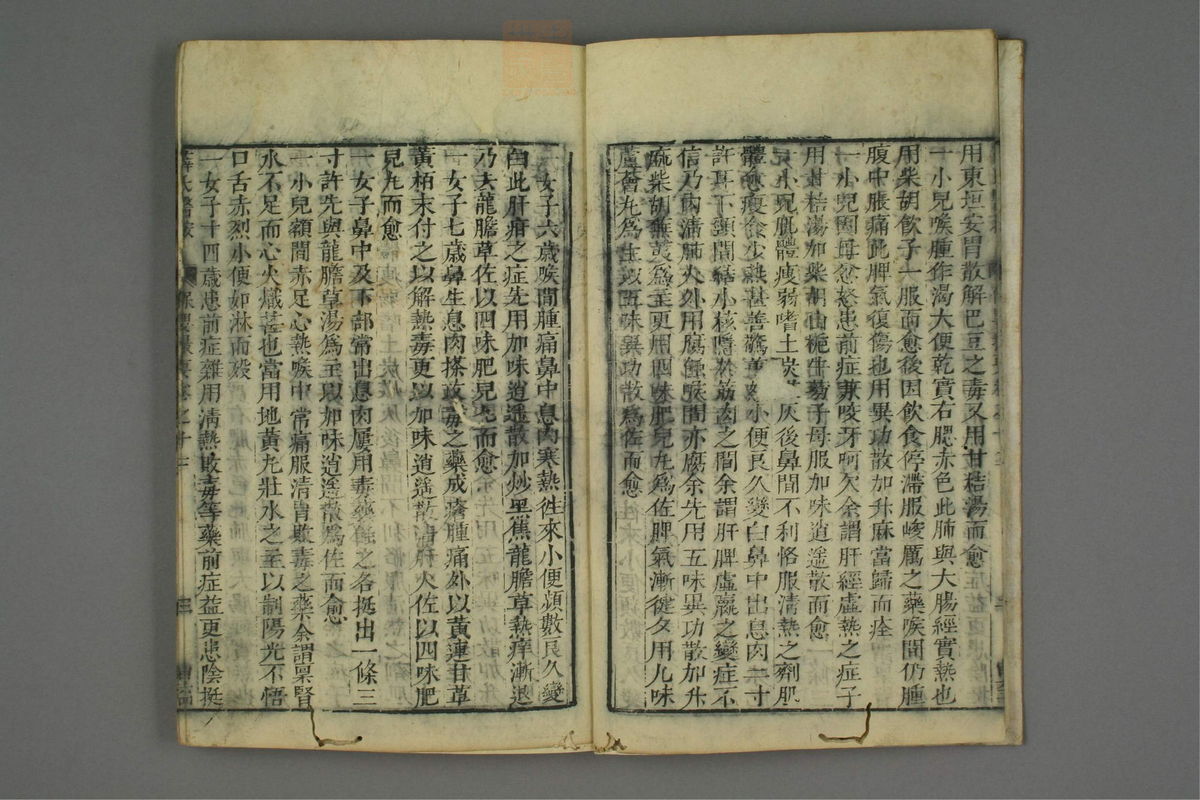 用東垣安胃散解巴豆之毒又用甘桔湯而愈
一小兒喉腫作渴大便乾實右腮赤色此肺與大腸經實熱也
用柴胡飲子一服而愈後因飲食停滯服峻厲之藥喉間仍腫
腹中脹痛此脾氣復傷也用異功散加升麻當歸而痊
一小兒因母忿怒患前症兼咬牙呵欠余謂肝經虛熱之症子
用甘桔湯加柴胡山梔牛蒡子母服加味逍遙散而愈
一小兒肌體瘦弱嗜土炭 灰後鼻間不利恪服清熱之劑肌
體愈瘦食少熱甚善驚 小便良久變白鼻中出息肉二寸
許耳下頸間結小核隱於筋肉之間余謂肝脾虛羸之變症不
信乃內清肺火外用腐 喉間亦腐余先用五味異功散加升
麻柴胡蕪荑爲主更用四味肥兒丸爲佐脾氣漸健夕用九味
蘆薈丸爲主以五味異功散爲佐而愈
一女子六歲喉間腫痛鼻中息肉寒熱徃來小便頻數良久變
白此肝疳之症先用加味逍遙散加炒黑焦龍膽草熱痒漸退
乃去龍膽草佐以四味肥兒丸而愈
一女子七歲鼻生息肉搽敗毒之藥成瘡腫痛外以黃連甘草
黃柏末付之以解熱毒更以加味逍遙散清肝火佐以四味肥
兒丸而愈
一女子鼻中及下部常出息肉屢用毒藥 之各挺出一條三
寸許先與龍膽草湯爲主以加味逍遙散爲佐而愈
一小兒額間赤足心熱喉中常痛服清胃敗毒之藥余謂稟腎
水不足而心火熾甚也當用地黃丸壯水之主以制陽光不悟
口舌赤烈小便如淋而歿
一女子十四歲患前症雜用清熱敗毒等藥前症益更患陰挺